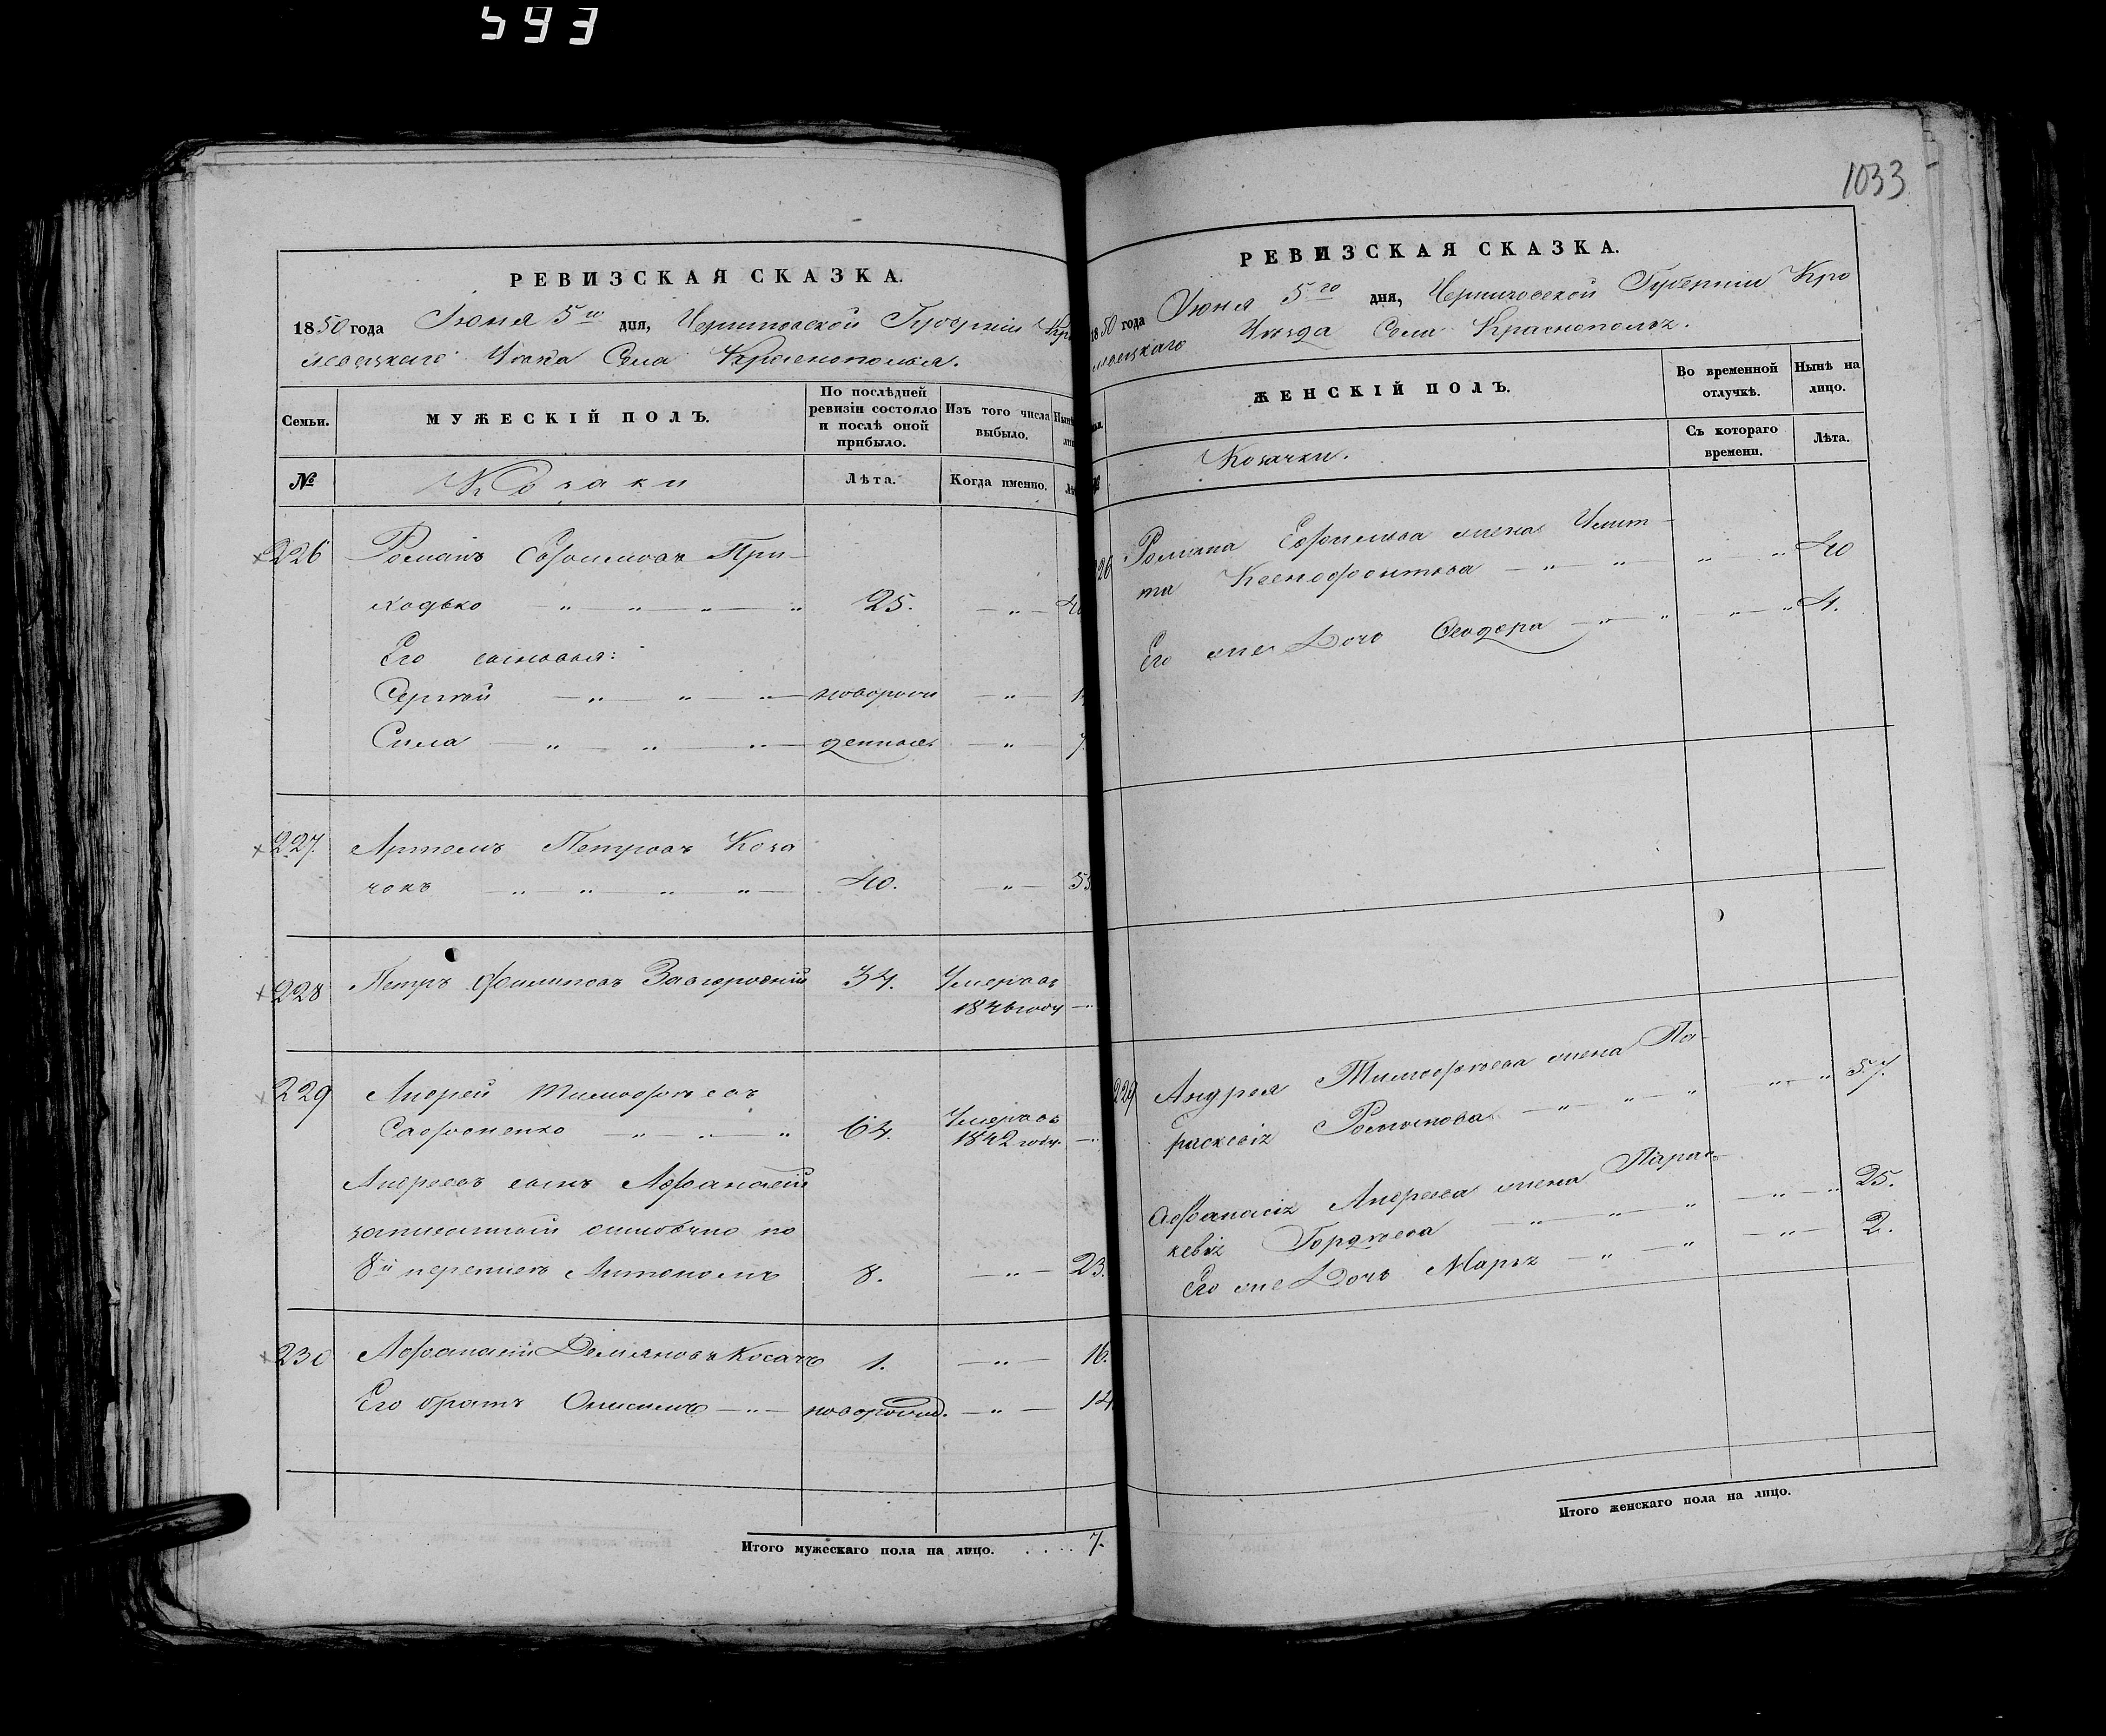 593
РЕВИЗСКАЯ СКАЗКА.
1850 года Июня 5го дня, Черниговской Губерніи Кро
левецкаго Уѣзда Села Краснополья.
Семьи.
МУЖЕСКІЙ ПОЛЪ.
По послѣдней ревизіи состояло и послѣ оной прибыло.
Изъ того числа выбыло.
№
Козаки
Лѣта.
Когда именно.
226 Романъ Ефимовъ При-
ходько 25.
Его сыновья:
Сергѣй новорож
Сила денные 7.
227. Артемъ Петровъ Коза
чокъ 40. 55
228 Петръ Филиповъ Завгородній 34. Умеръ въ
1846 году
229 Андрей Тимофѣевъ
Сафоненко 64. Умеръ въ
1842 году.
Андреевъ сынъ Афанасій
записанный ошибочно по
8й переписѣ Антономъ 8. 23.
230 Афанасій Демяновъ Косачъ 1. 16.
Его братъ Онисимъ новорожд. 14
Итого мужескаго пола на лицо. 7.
1033
РЕВИЗСКАЯ СКАЗКА.
1850 года Июня 5го дня, Черниговской Губерніи Кро
левецкаго Уѣзда Села Краснополья.
ЖЕНСКІЙ ПОЛЪ.
Во временной отлучкѣ.
Нынѣ на лицо.
Козачки.
Съ котораго времени.
Лѣта.
226 Романа Ефимова жена Улит-
та Ксенофонтова 40
Его же Дочь Феодора 4.
229 Андрея Тимофѣева жена Па-
раскевія Романова 57.
Афанасія Андреева жена Парас-
кевія Гордѣева 25.
Его же Дочь Марья 2.
Итого женскаго пола на лицо.